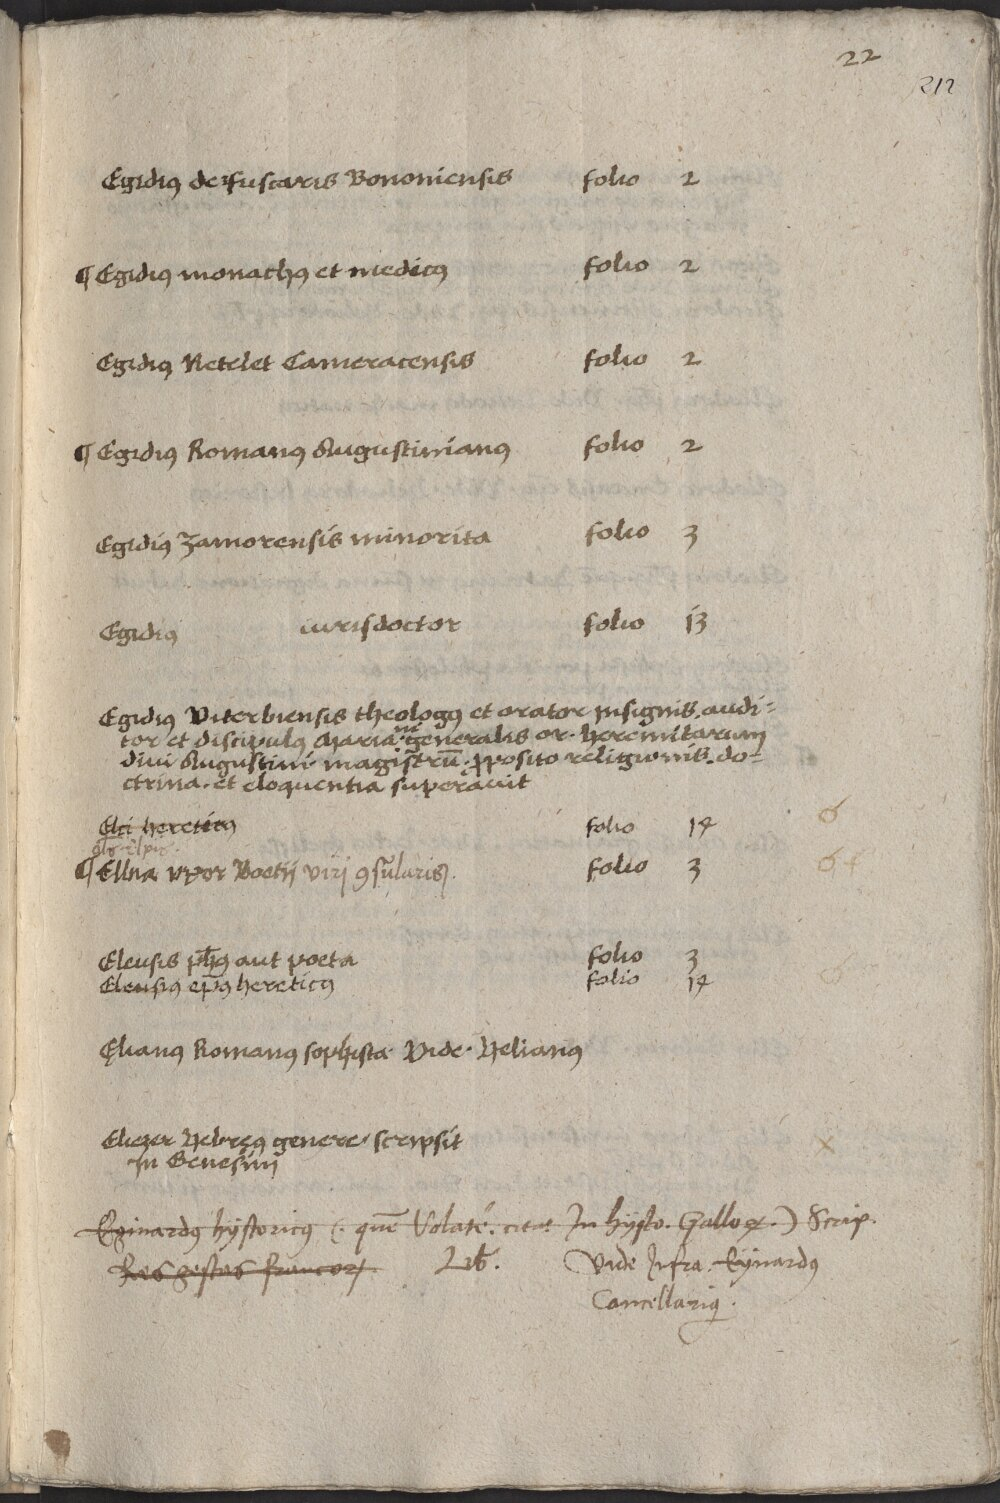 22
212
Egidiꝰ de Fuscaris Bononiensis folio 2
¶ Egidiꝰ monachꝰ et medicꝰ folio 2
Egidiꝰ Retelet Cameracensis folio 2
¶ Egidiꝰ Romanꝰ Augustinianꝰ folio 2
Egidiꝰ Zamorensis minorita folio 3
Egidiꝰ iurisdoctor folio 13
Egidiꝰ Viterbiensis theologꝰ et orator insignis, audi-
tor et discipulꝰ Mariani generalis or. heremitarum
divi Augustini. magistrū ꝓposito religionis. do-
ctrina. et eloquentia superavit
Elci hereticꝰ folio 14
¶ Elina uxor Boetij virj ꝯsularis folio 3
Eleusis ph̄ꝰ aut poeta folio 3
Eleusiꝰ ep̄ꝰ hereticꝰ folio 14
Elianꝰ Romanꝰ sophista Vide. Helianꝰ
Eliezer Hebreꝰ genere scripsit
In Genesim
Eginardꝰ hystoricꝰ (. quē Volaté. citat In hysto. Galloꝝ.) Scrip.
Res gestas francoꝝ. Lib. Vide Infra. Eynardꝰ
Cancellariꝰ.